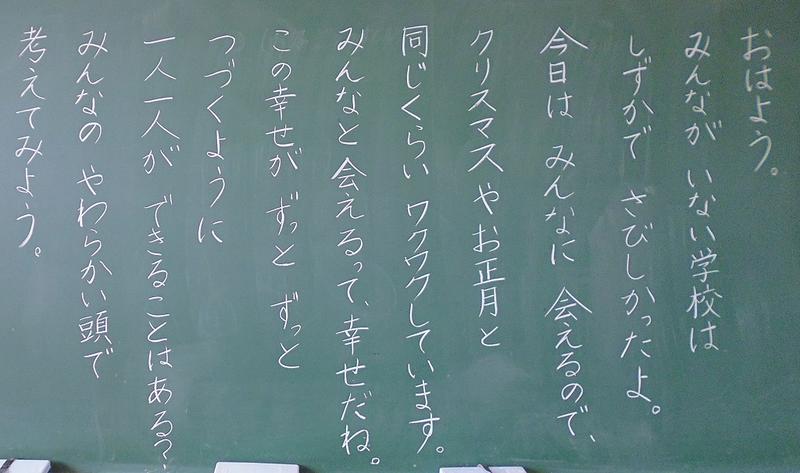 おはよう。
みんなが いない学校は
しずかで さびしかったよ。
今日は みんなに 会えるので、
クリスマス や お正月 と
同じくらい ワクワクしています。
みんなと 会えるって、幸せだね。
この幸せが ずっと ずっと
つづくように
一人一人が できることはある?
みんなの やわらかい頭で
考えてみよう。